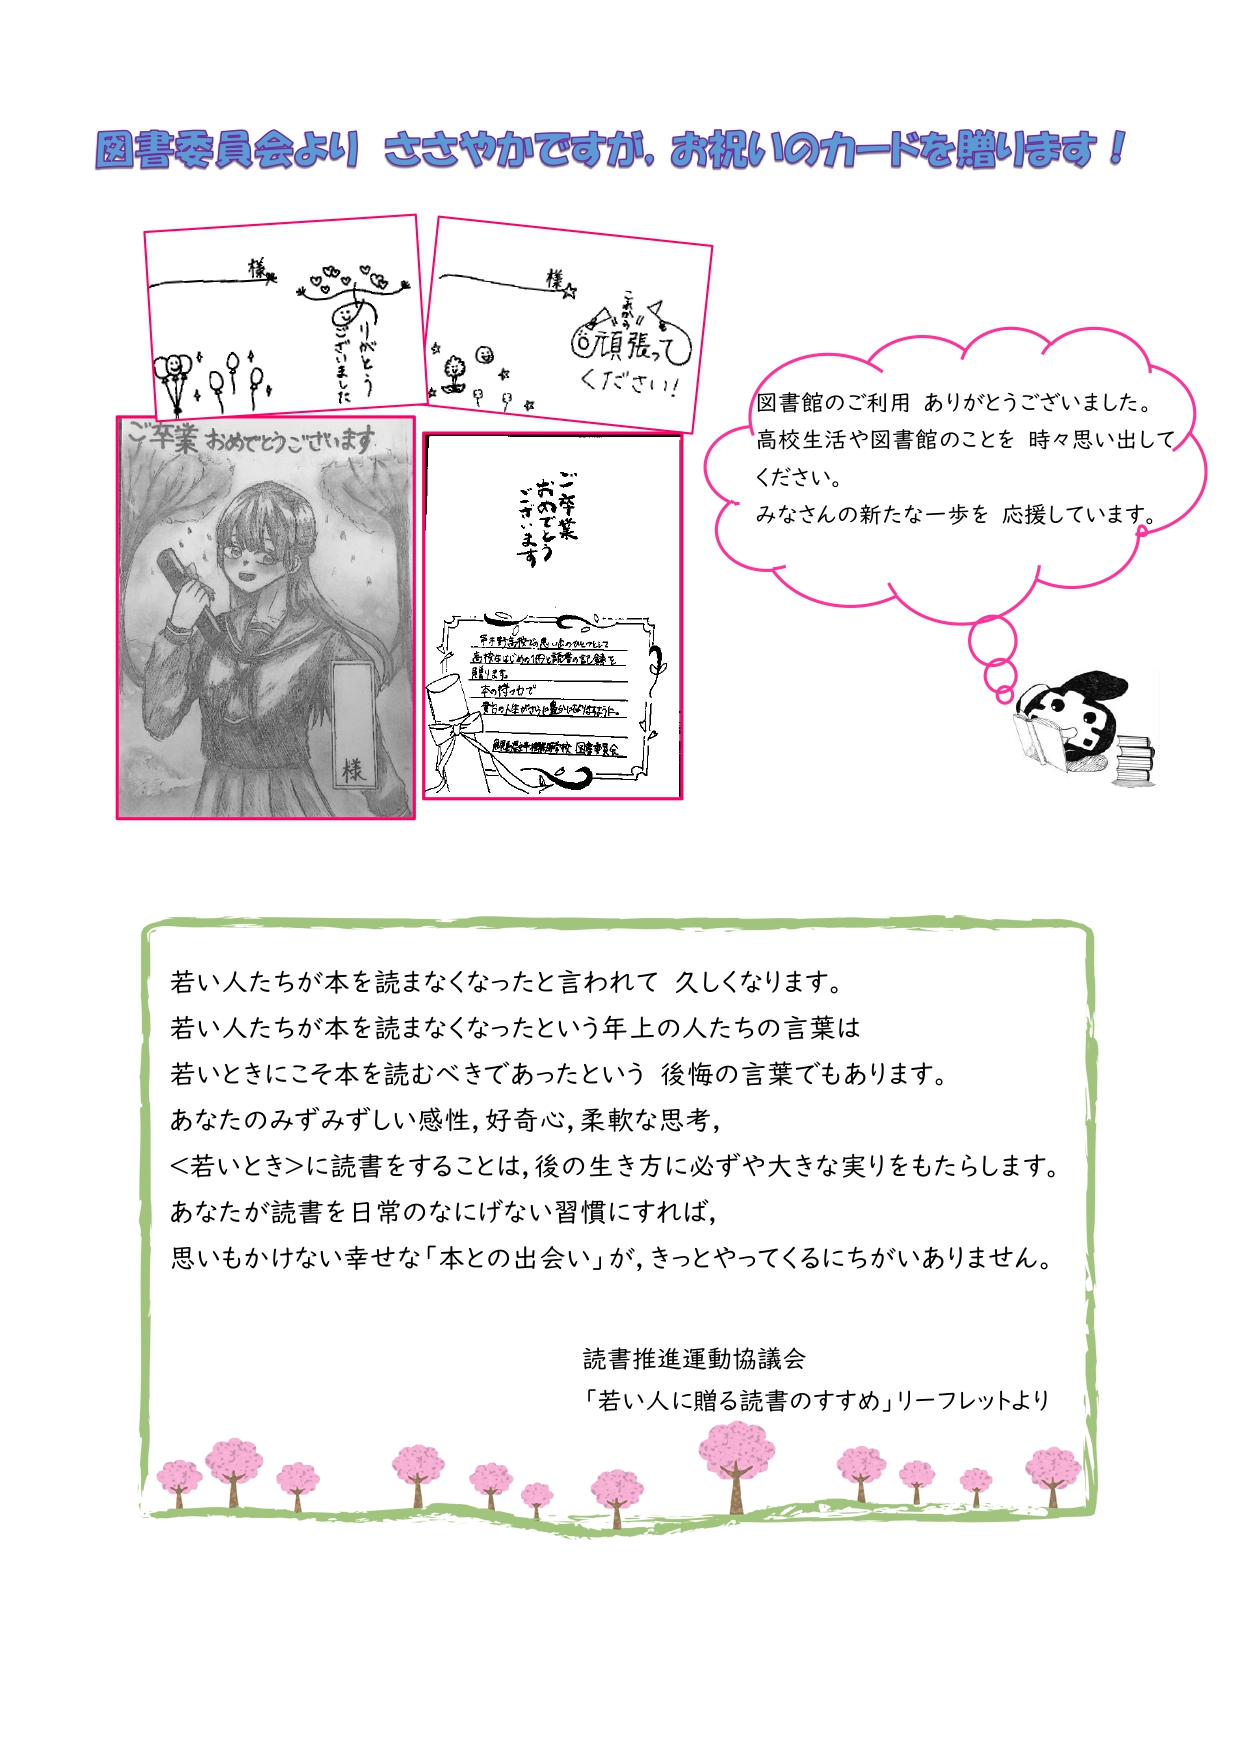 図書委員会より ささやかですが，お祝いのカードを贈ります！
様
ありがとう
ございました
様
これから
頑張って
ください!
ご卒業 おめでとうございます
様
ご卒業
おめでとう
ございます
贈ります。
本の持つ力で
図書委員会
図書館のご利用 ありがとうございました。
高校生活や図書館のことを 時々思い出して
ください。
みなさんの新たな一歩を 応援しています。
若い人たちが本を読まなくなったと言われて 久しくなります。
若い人たちが本を読まなくなったという年上の人たちの言葉は
若いときにこそ本を読むべきであったという 後悔の言葉でもあります。
あなたのみずみずしい感性，好奇心，柔軟な思考，
＜若いとき＞に読書をすることは，後の生き方に必ずや大きな実りをもたらします。
あなたが読書を日常のなにげない習慣にすれば，
思いもかけない幸せな「本との出会い」が，きっとやってくるにちがいありません。
読書推進運動協議会
「若い人に贈る読書のすすめ」リーフレットより